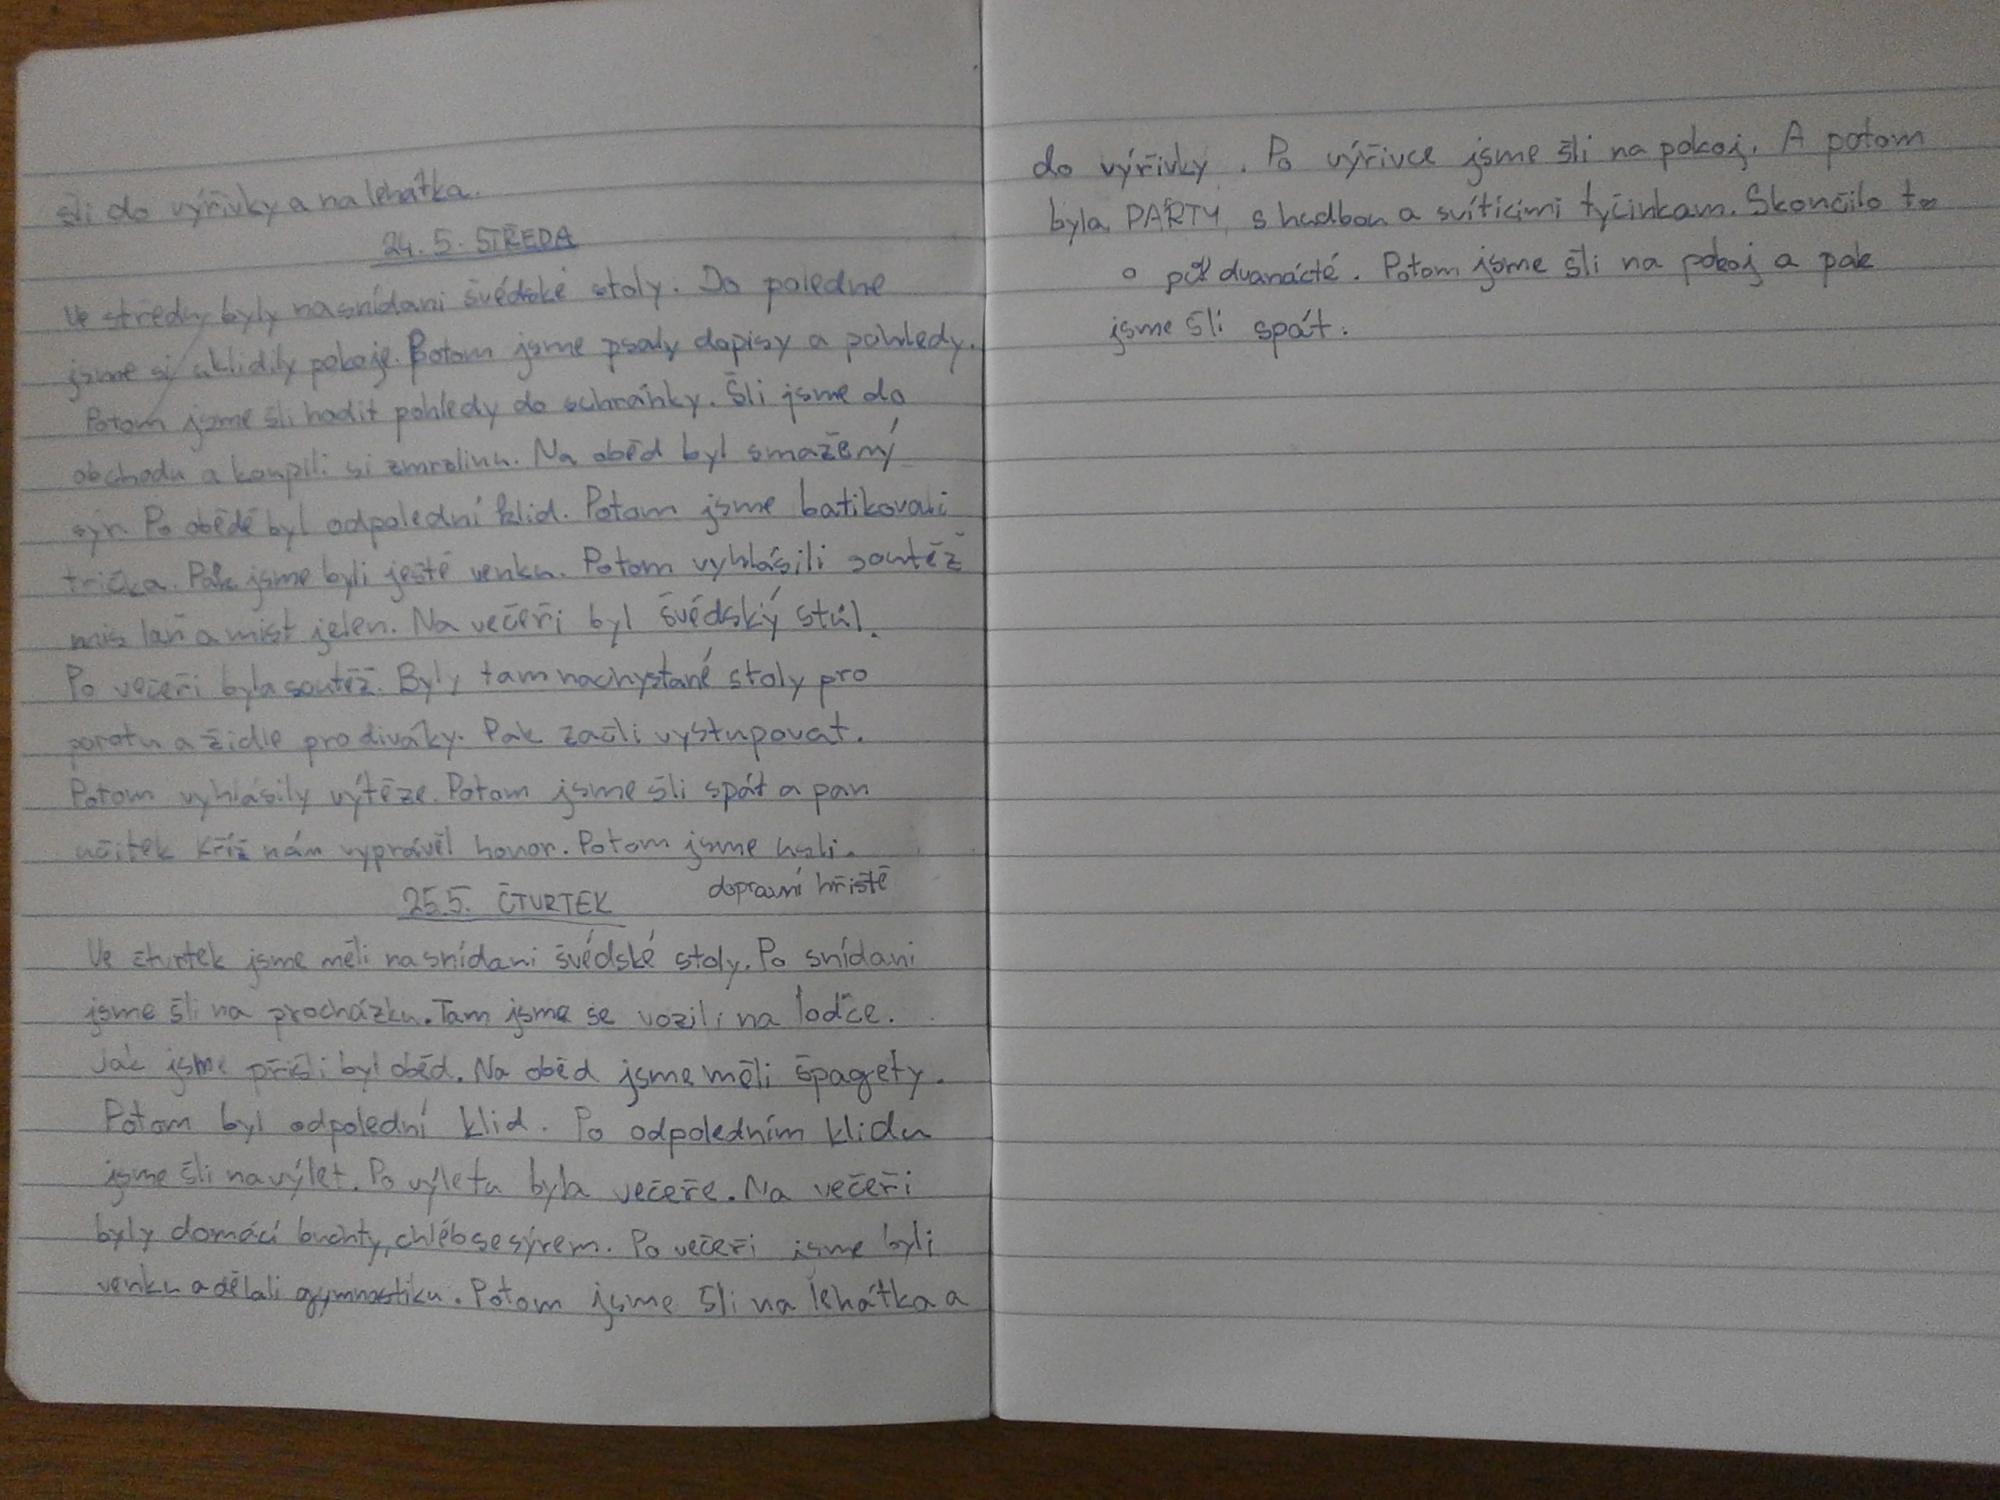 šli do výřivky a na lehátka.
24. 5. STŘEDA
Ve středu byly na snídani švédské stoly. Do poledne
jsme si uklidily pokoje. Potom jsme psaly dopisy a pohledy.
Potom jsme šli hodit pohledy do schránky. Šli jsme do
obchodu a koupili si zmrzlinu. Na oběd byl smažený
sýr. Po obědě byl odpolední klid. Potom jsme batikovali
trička. Pak jsme byli ještě venku. Potom vyhlásili soutěž
mis laň a mist jelen. Na večeři byl švédský stůl.
Po večeři byla soutěž. Byly tam nachystané stoly pro
porotu a židle pro diváky. Pak začli vystupovat.
Potom vyhlásily výtěze. Potom jsme šli spát a pan
učitek Kříž nám vyprávěl honor. Potom jsme usli.
25.5. ČTVRTEK dopravní hřiště
Ve čtvrtek jsme měli na snídani švédské stoly. Po snídani
jsme šli na procházku. Tam jsme se vozili na loďce.
Jak jsme přišli byl oběd. Na oběd jsme měli špagety.
Potom byl odpolední klid. Po odpoledním klidu
jsme šli na výlet. Po výletu byla večeře. Na večeři
byly domácí buchty, chléb se sýrem. Po večeři jsme byli
venku a dělali gymnastiku. Potom jsme šli na lehátka a
do výřivky. Po výřivce jsme šli na pokoj. A potom
byla PARTY s hudbou a svítícími tyčinkam. Skončilo to
o půl dvanácté. Potom jsme šli na pokoj a pak
jsme šli spát.